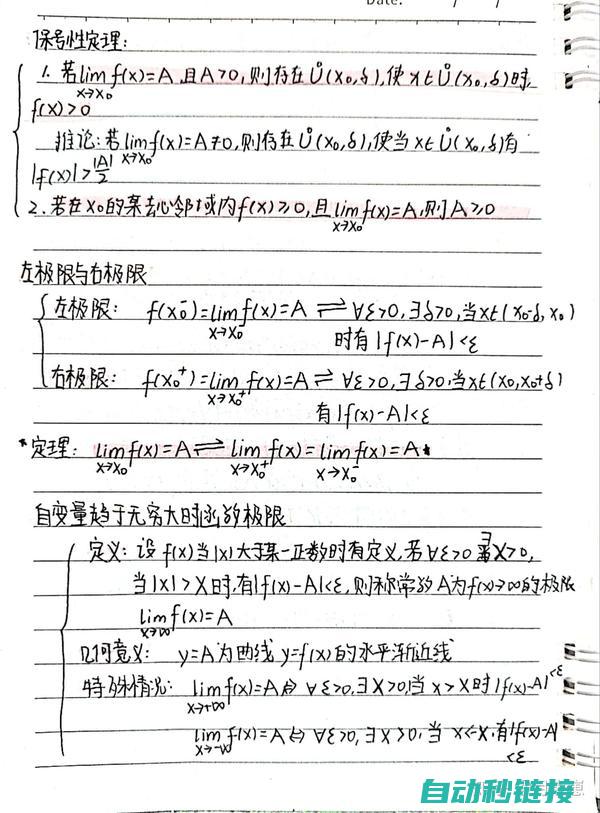 Date: / /
保号性定理:
1. 若lim f(x)=A,且A>0,则存在Ů(x₀,δ),使x∈Ů(x₀,δ)时,
x→x₀
f(x)>0
推论:若lim f(x)=A≠0,则存在Ů(x₀,δ),使当x∈Ů(x₀,δ)有
x→x₀
|f(x)|>|A|/2
2. 若在x₀的某去心邻域内f(x)≥0,且lim f(x)=A,则A≥0
x→x₀
左极限与右极限
左极限: f(x₀⁻)=lim f(x)=A ⇌ ∀ε>0,∃δ>0,当x∈(x₀-δ,x₀)
x→x₀
时有|f(x)-A|<ε
右极限: f(x₀⁺)=lim f(x)=A ⇌ ∀ε>0,∃δ>0,当x∈(x₀,x₀+δ)
x→x₀⁺
有|f(x)-A|<ε
*定理: lim f(x)=A ⇌ lim f(x)=lim f(x)=A*
x→x₀ x→x₀⁺ x→x₀⁻
自变量趋于无穷大时函数的极限
定义: 设f(x)当|x|大于某一正数时有定义,若∀ε>0 ∃X>0,
当|x|>X时,有|f(x)-A|<ε,则称常数A为f(x)→∞的极限
lim f(x)=A
x→∞
几何意义: y=A为曲线y=f(x)的水平渐近线
特殊情况: lim f(x)=A⇔ ∀ε>0,∃X>0,当x>X时|f(x)-A|<ε
x→+∞
lim f(x)=A⇔ ∀ε>0,∃X>0,当x<-X,有|f(x)-A|
x→-∞
<ε
自动秒链接